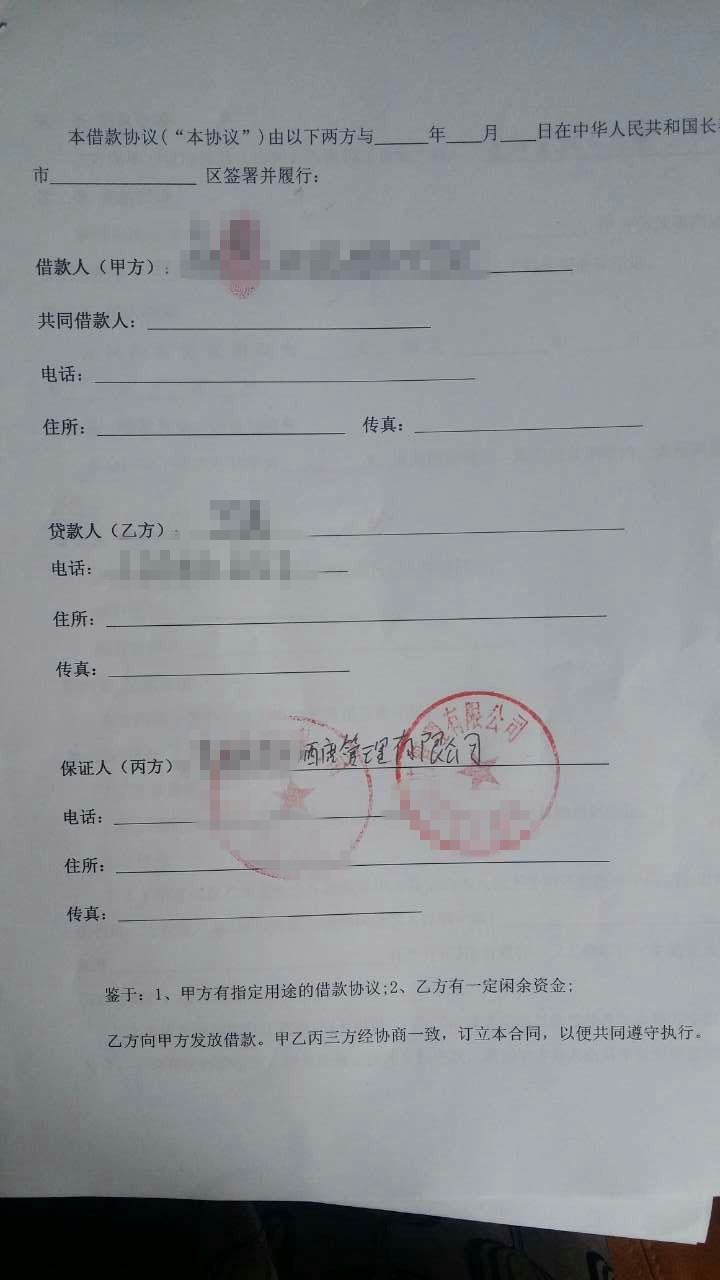 本借款协议(“本协议”)由以下两方与______年____月____日在中华人民共和国长
市________________ 区签署并履行：
借款人（甲方）：
共同借款人：
电话：
住所： 传真：
贷款人（乙方）：
电话：
住所：
传真：
有限公司
保证人（丙方） 酒店管理有限公司
电话：
住所：
传真：
鉴于：1、甲方有指定用途的借款协议;2、乙方有一定闲余资金;
乙方向甲方发放借款。甲乙丙三方经协商一致，订立本合同，以便共同遵守执行。